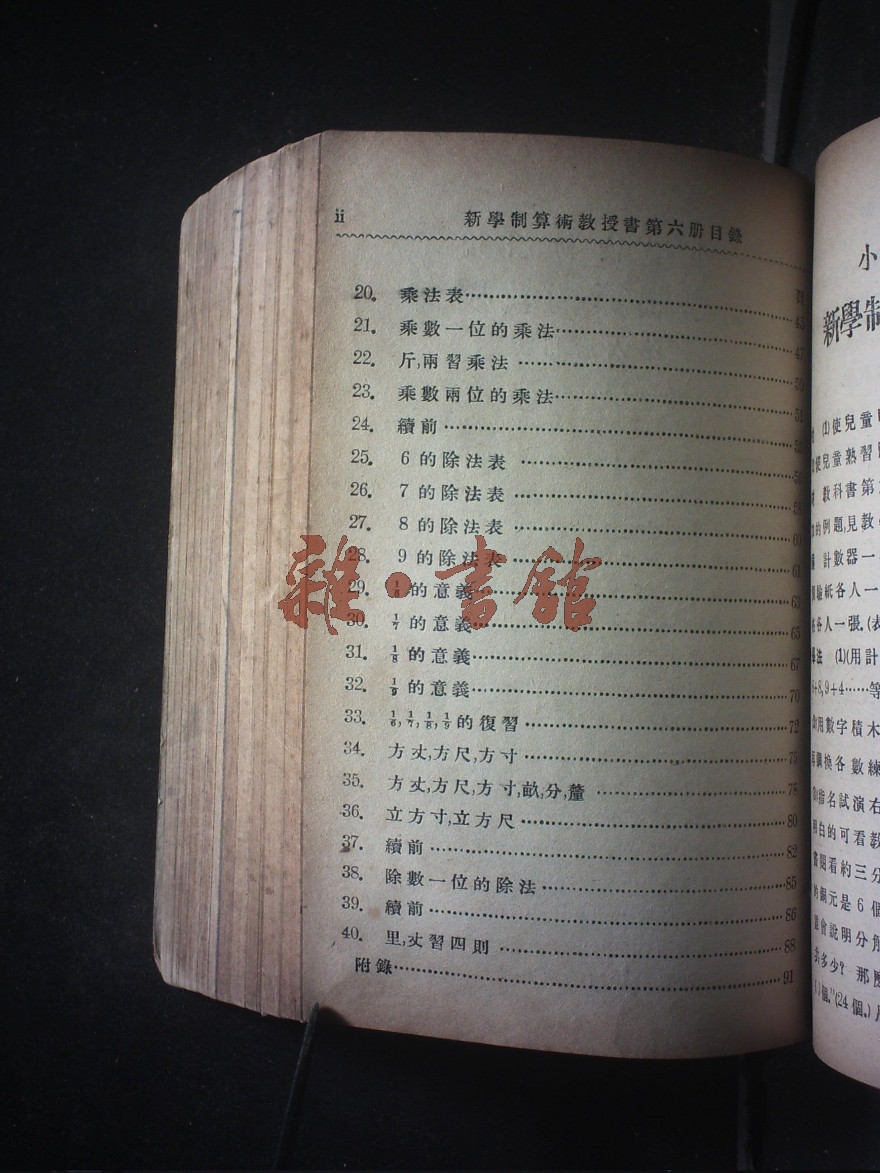 ii 新學制算術教授書第六册目錄
20. 乘法表……45
21. 乘數一位的乘法……47
22. 斤,兩習乘法……50
23. 乘數兩位的乘法……51
24. 續前……
25. 6的除法表……
26. 7的除法表……58
27. 8的除法表……60
28. 9的除法表……61
29. 的意義……63
30. 1/7的意義……65
31. 1/8的意義……67
32. 1/9的意義……70
33. 1/6,1/7,1/8,1/9的復習……72
34. 方丈,方尺,方寸……75
35. 方丈,方尺,方寸,畝,分,釐……78
36. 立方寸,立方尺……80
37. 續前……82
38. 除數一位的除法……85
39. 續前……86
40. 里,丈習四則……88
附錄……91
雜·書館
小
新學制
(1)使兒童
使兒童熟習
教科書第
的例題,見教
計數器一
實驗紙各人一
各人一張.(表
法 (1)(用計
+8,9+4……等
用數字積木
再調換各數練
指名試演右
明白的可看教
看約三分
的銅元是6個
會說明分
去多少? 那
個."(24個.)